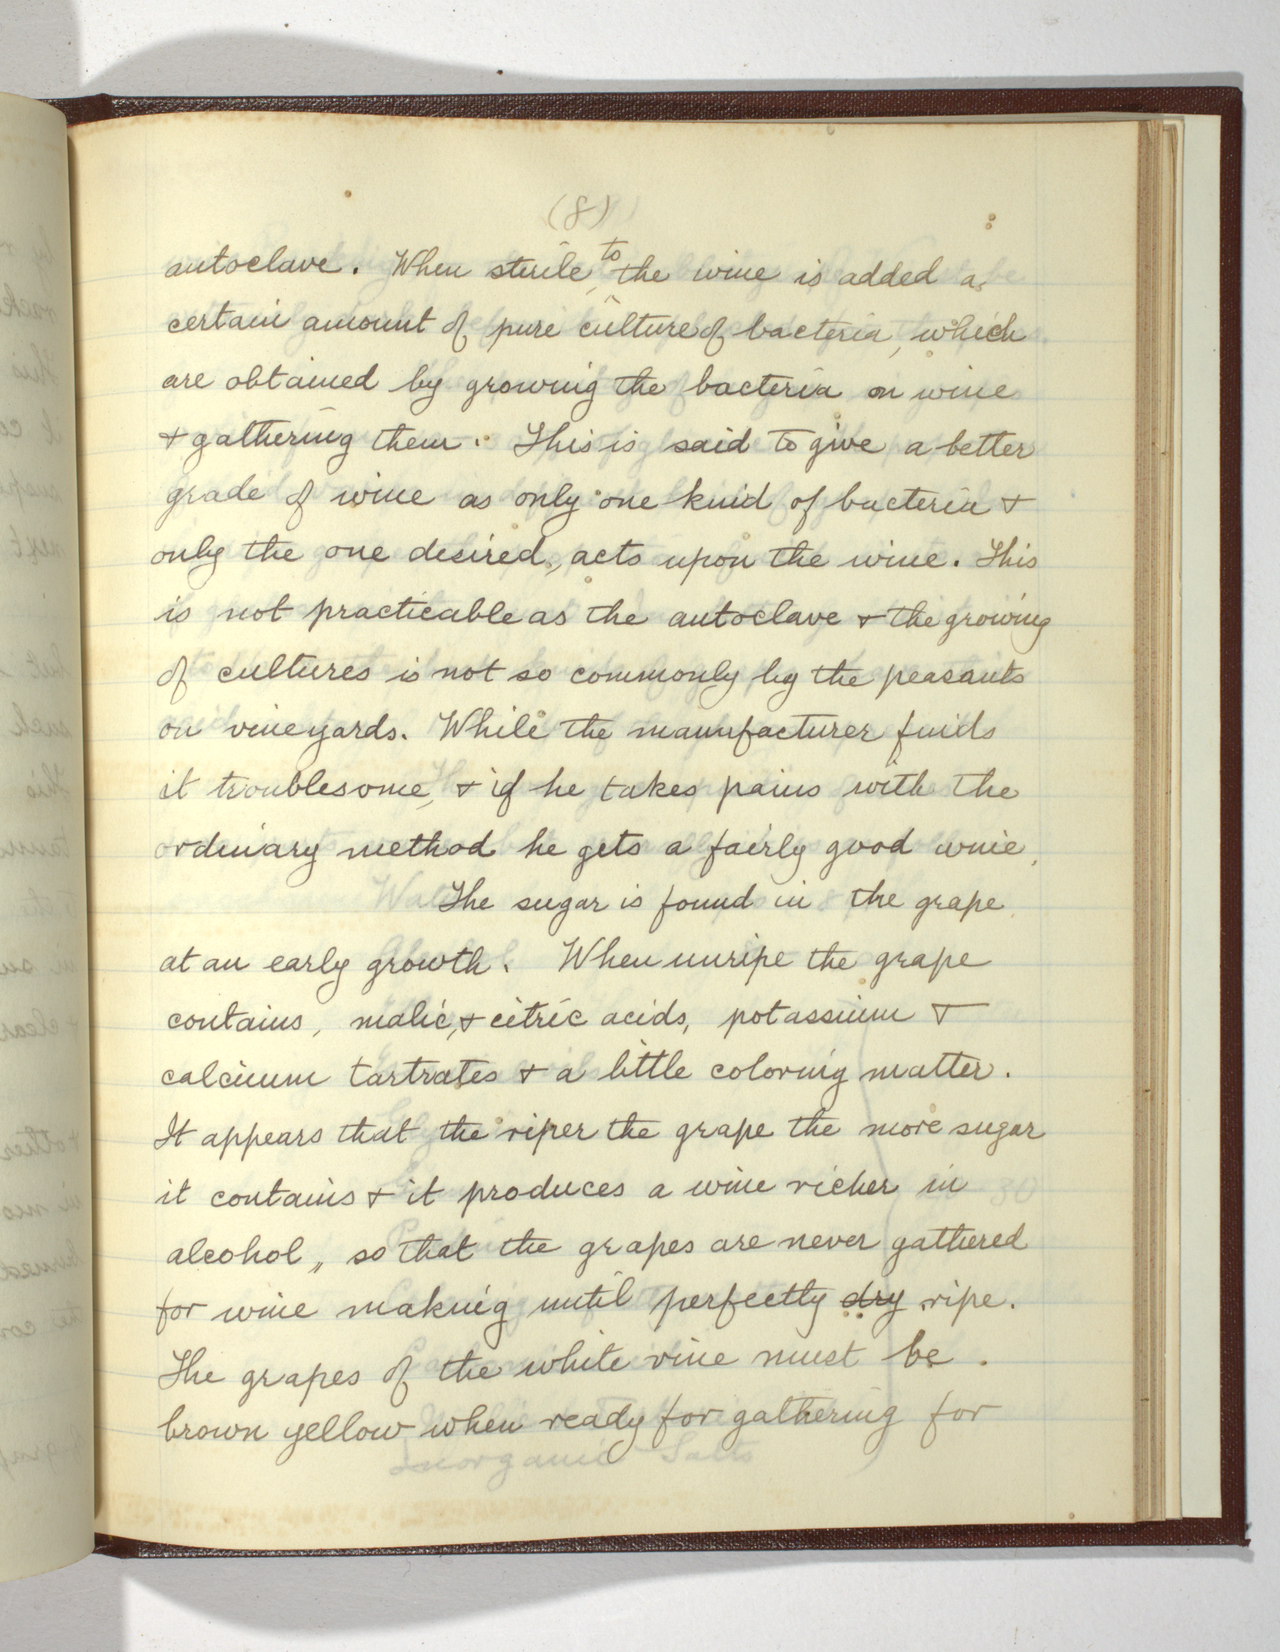 (8)
autoclave. When sterile, to the wine is added a
certain amount of pure culture of bacteria, which
are obtained by growing the bacteria on wine
& gathering them. This is said to give a better
grade of wine as only one kind of bacteria &
only the one desired, acts upon the wine. This
is not practicable as the autoclave & the growing
of cultures is not so commonly by the peasants
on vineyards. While the manufacturer finds
it troublesome, & if he takes pains with the
ordinary method he gets a fairly good wine,
The sugar is found in the grape
at an early growth. When unripe the grape
contains, malic, & citric acids, potassium &
calcium tartrates & a little coloring matter.
It appears that the riper the grape the more sugar
it contains & it produces a wine richer in
alcohol, so that the grapes are never gathered
for wine making until perfectly dry ripe.
The grapes of the white vine must be
brown yellow when ready for gathering for
Inorganic Salts